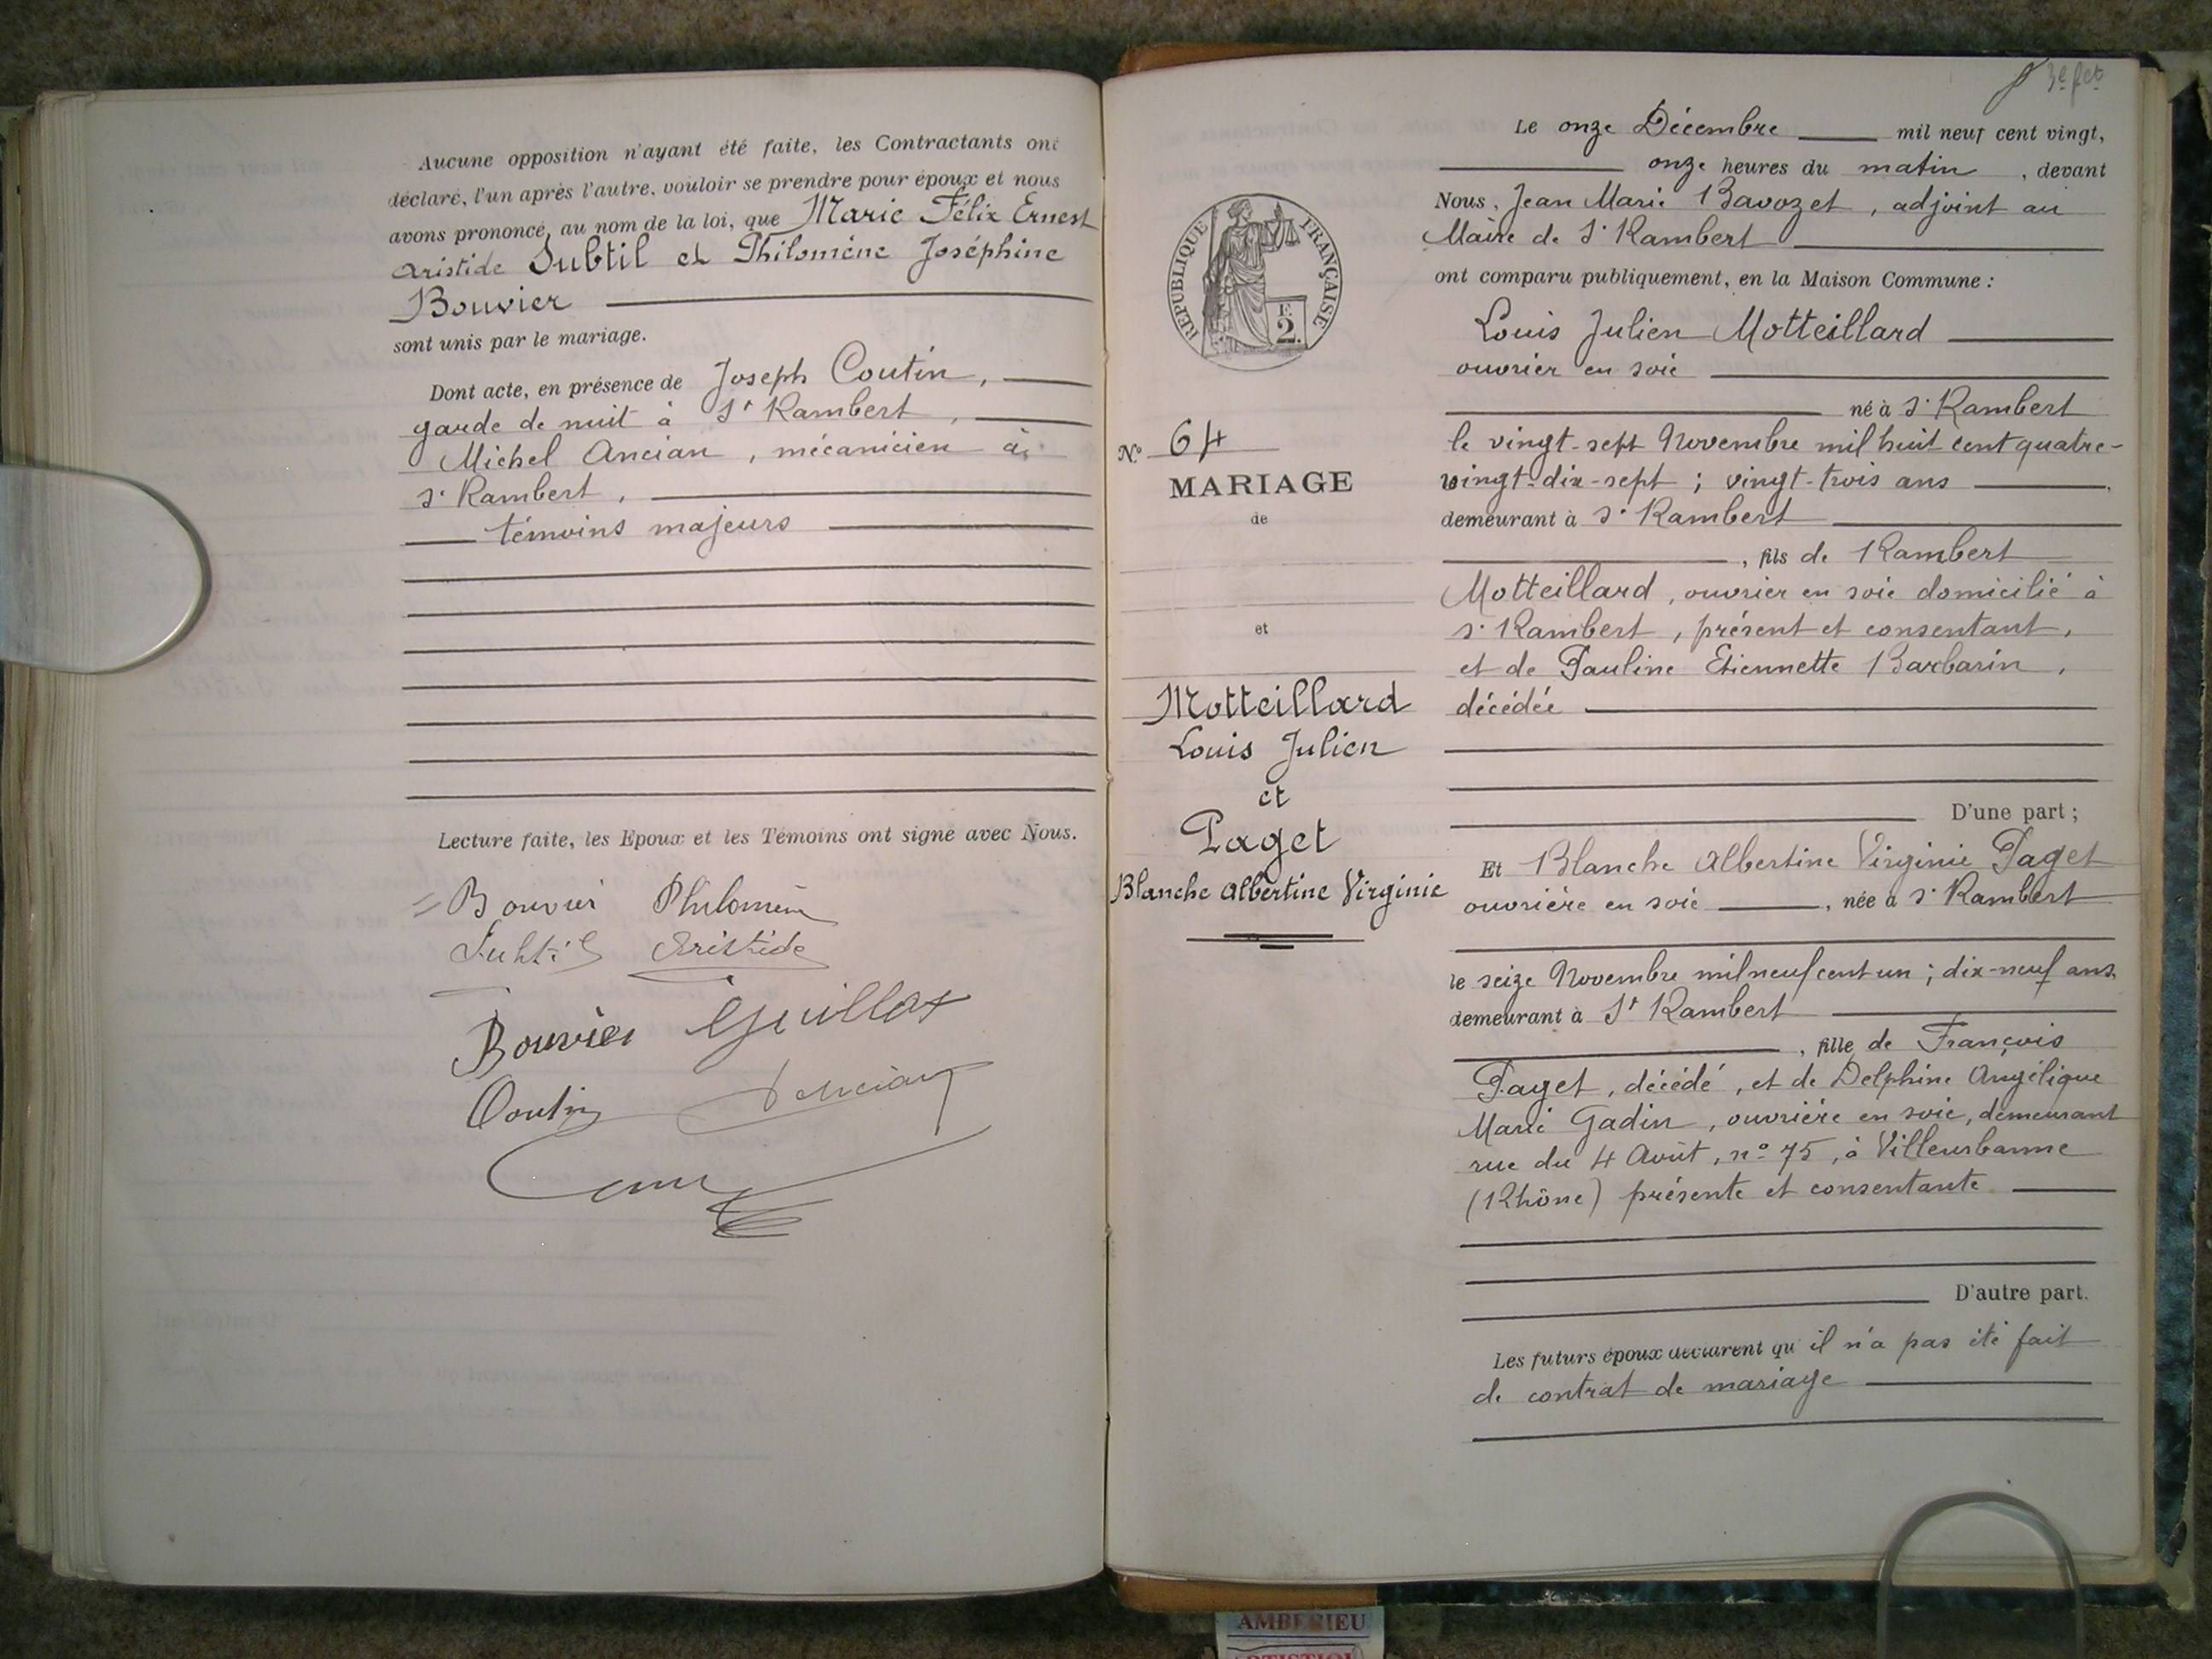 Aucune opposition n'ayant été faite, les Contractants ont
déclaré, l'un après l'autre, vouloir se prendre pour époux et nous
avons prononcé, au nom de la loi, que Marie Félix Ernest
Aristide Subtil et Philomène Joséphine
Bouvier
sont unis par le mariage.
Dont acte, en présence de Joseph Coutin,
garde de nuit à St Rambert,
Michel Ancian, mécanicien à
St Rambert,
témoins majeurs
Lecture faite, les Epoux et les Témoins ont signé avec Nous.
Bouvier Philomène
Subtil Aristide
Bouvier Guillot
Coutin Ancian
3e fet
RÉPUBLIQUE FRANÇAISE
F.
2.
No 64
MARIAGE
de
et
Motteillard
Louis Julien
et
Paget
Blanche Albertine Virginie
Le onze Décembre mil neuf cent vingt,
onze heures du matin, devant
Nous, Jean Marie Bavozet, adjoint au
Maire de St Rambert
ont comparu publiquement, en la Maison Commune :
Louis Julien Motteillard
ouvrier en soie
né à St Rambert
le vingt-sept Novembre mil huit cent quatre-
vingt-dix-sept ; vingt-trois ans,
demeurant à St Rambert
, fils de Rambert
Motteillard, ouvrier en soie domicilié à
St Rambert, présent et consentant,
et de Pauline Etiennette Barbarin,
décédée
D'une part ;
Et Blanche Albertine Virginie Paget
ouvrière en soie, née à St Rambert
le seize Novembre mil neuf cent un ; dix-neuf ans
demeurant à St Rambert
, fille de François
Paget, décédé, et de Delphine Angélique
Marie Gadin, ouvrière en soie, demeurant
rue du 4 Août, no 75, à Villeurbanne
(Rhône) présente et consentante
D'autre part.
Les futurs époux déclarent qu'il n'a pas été fait
de contrat de mariage
AMBERIEU